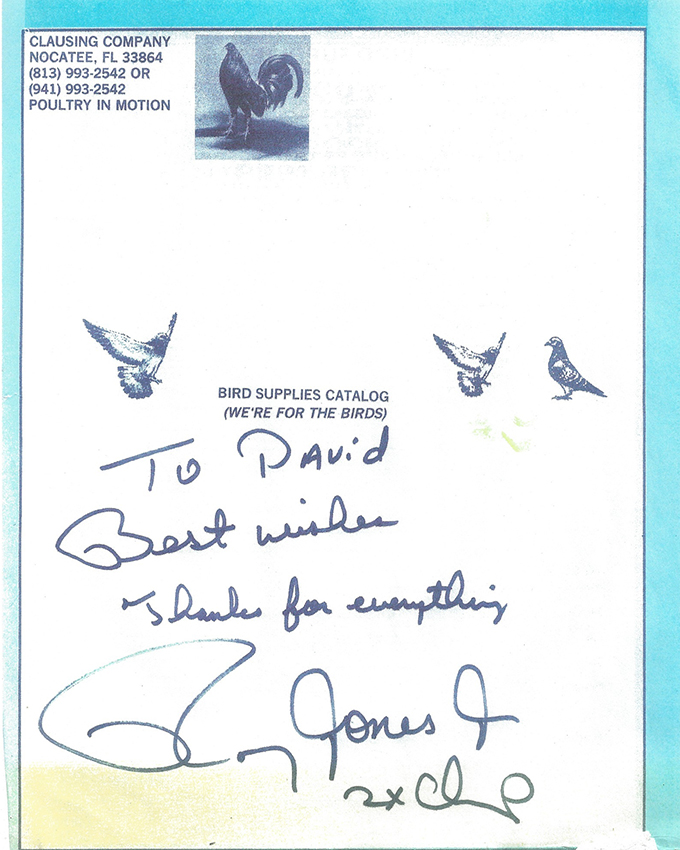 CLAUSING COMPANY
NOCATEE, FL 33864
(813) 993-2542 OR
(941) 993-2542
POULTRY IN MOTION
BIRD SUPPLIES CATALOG
(WE'RE FOR THE BIRDS)
To David
Best wishes
Thanks for everything
Roy Jones Jr
2x Champ